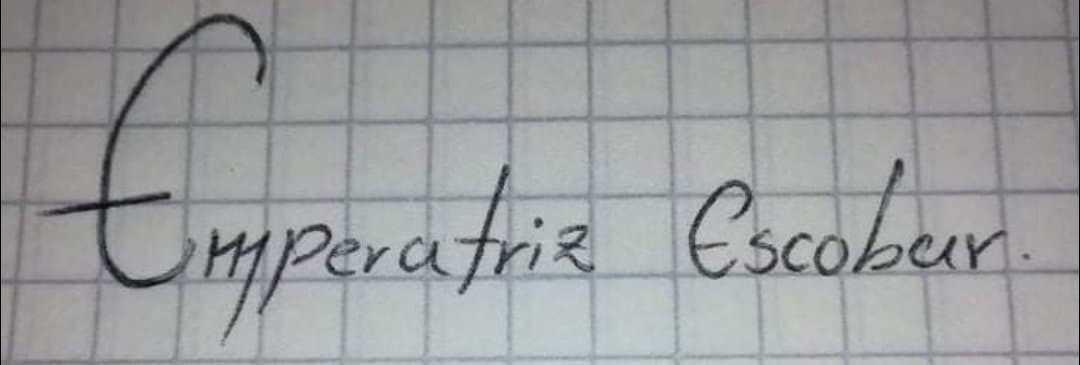 Emperatriz Escobar.